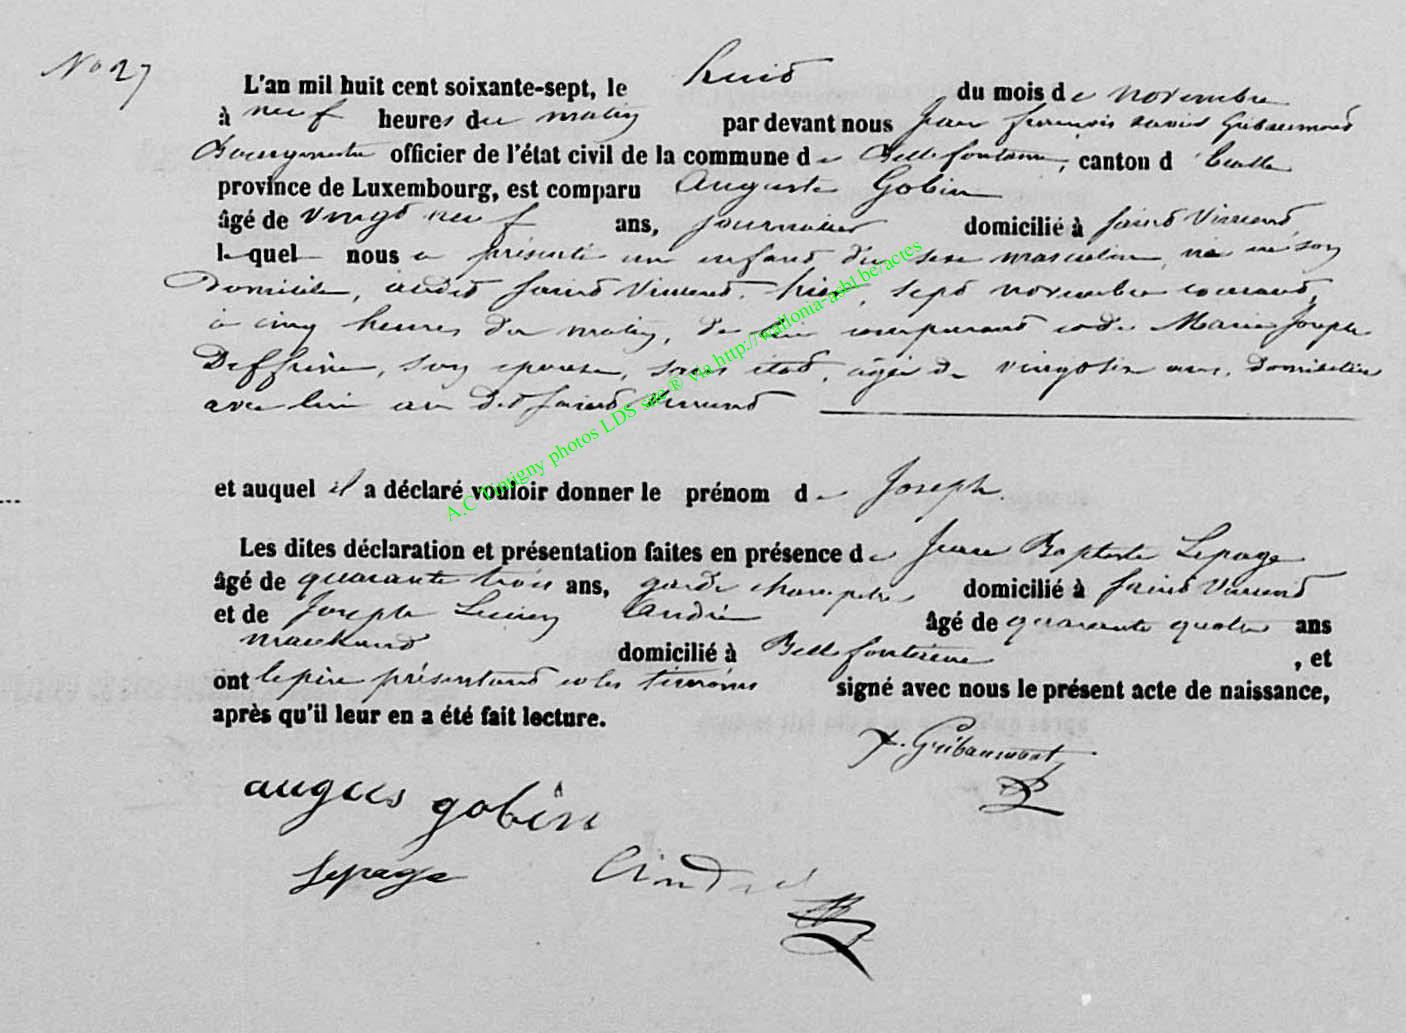 No 27
L'an mil huit cent soixante-sept, le huit du mois de novembre
à neuf heures du matin par devant nous Jean françois xavier Gribaumont
Bourgmestre officier de l'état civil de la commune de Bellefontaine, canton d'Etalle
province de Luxembourg, est comparu Auguste Gobin
âgé de vingt neuf ans, journalier domicilié à saint Vincent,
lequel nous a présenté un enfant du sexe masculin, né en son
Domicile, audit saint Vincent, hier, sept novembre courant,
à cinq heures du matin, de lui comparant et de Marie Joseph
son épouse, sans état, âgée de vingt six ans, domiciliée
avec lui au dit saint Vincent
et auquel il a déclaré vouloir donner le prénom de Joseph.
Les dites déclaration et présentation faites en présence de Jean Baptiste Lepage
âgé de quarante trois ans, garde champêtre domicilié à saint Vincent
et de Joseph Lucien André âgé de quarante quatre ans
marchand domicilié à Bellefontaine, et
ont le père présentant et les témoins signé avec nous le présent acte de naissance,
après qu'il leur en a été fait lecture.
x. Gribaumont
augus gobin
Lepage André
A.C Tintigny photos LDS site ® via http://wallonia-asbl.be/actes